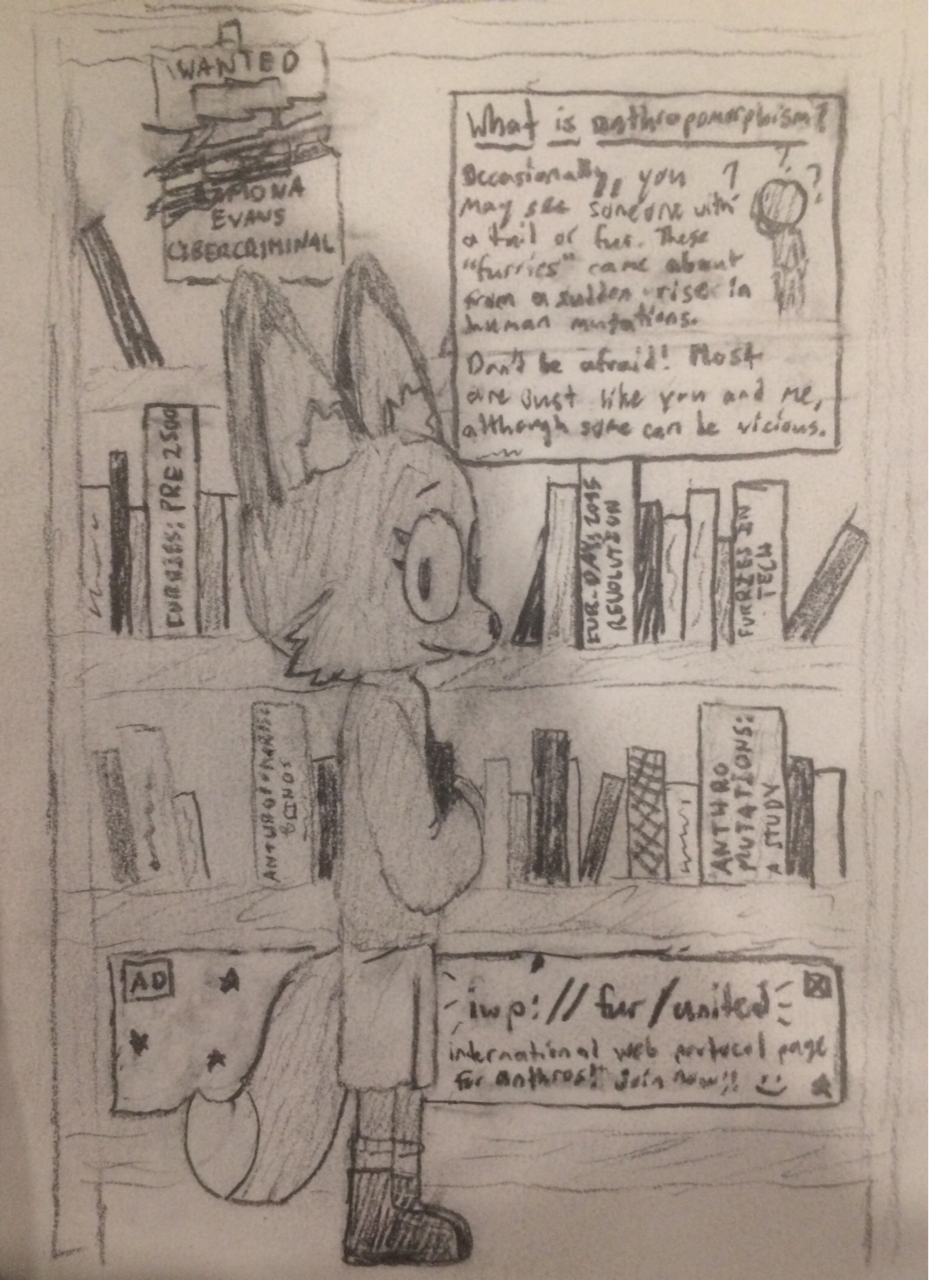 WANTED
RAMONA
EVANS
CYBERCRIMINAL
What is anthropomorphism?
Occasionally, you ?
may see someone with ? ?
a tail or fur. These
"furries" came about
from a sudden rise in
human mutations.
Don't be afraid! Most
are just like you and me,
although some can be vicious.
FURRIES: PRE 2500
REVOLUTION
FURRIES IN
TECH
ANTHRO
MUTATIONS:
A STUDY
AD
iwp://fur/united
international web protocol page
for anthros!! Join now!! :)